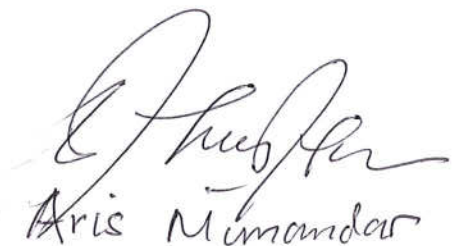 Aris Munandar